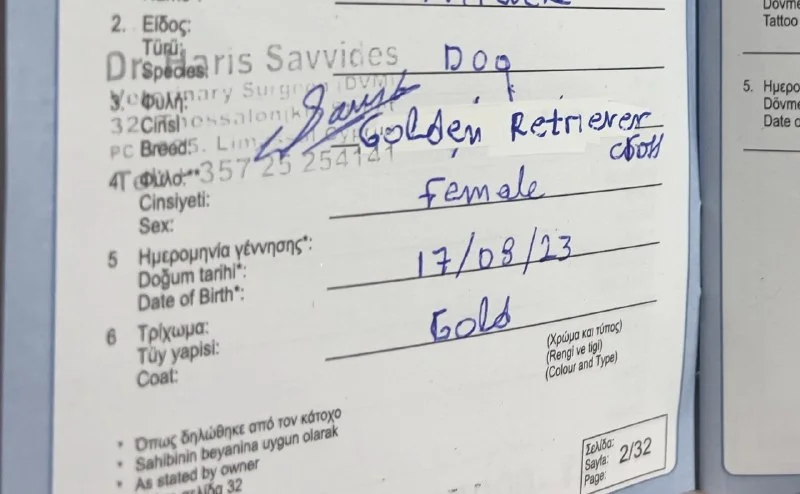 2. Είδος:
Türü:
Species: Dog
Dr. Haris Savvides
Veterinary Surgeon (DVM)
3. Φυλή:
Cinsi
Breed: Golden Retriever
cross
Limassol
357 25 254141
4 Φύλο:**
Cinsiyeti: Female
Sex:
5 Ημερομηνία γέννησης*:
Doğum tarihi*: 17/08/23
Date of Birth*:
6 Τρίχωμα:
Tüy yapisi: Gold
Coat:
(Χρώμα και τύπος)
(Rengi ve tigi)
(Colour and Type)
* Όπως δηλώθηκε από τον κάτοχο
* Sahibinin beyanina uygun olarak
* As stated by owner
σελίδα 32
Σελίδα:
Sayfa: 2/32
Page:
Tattoo
5. Ημερο
Dövme
Date o